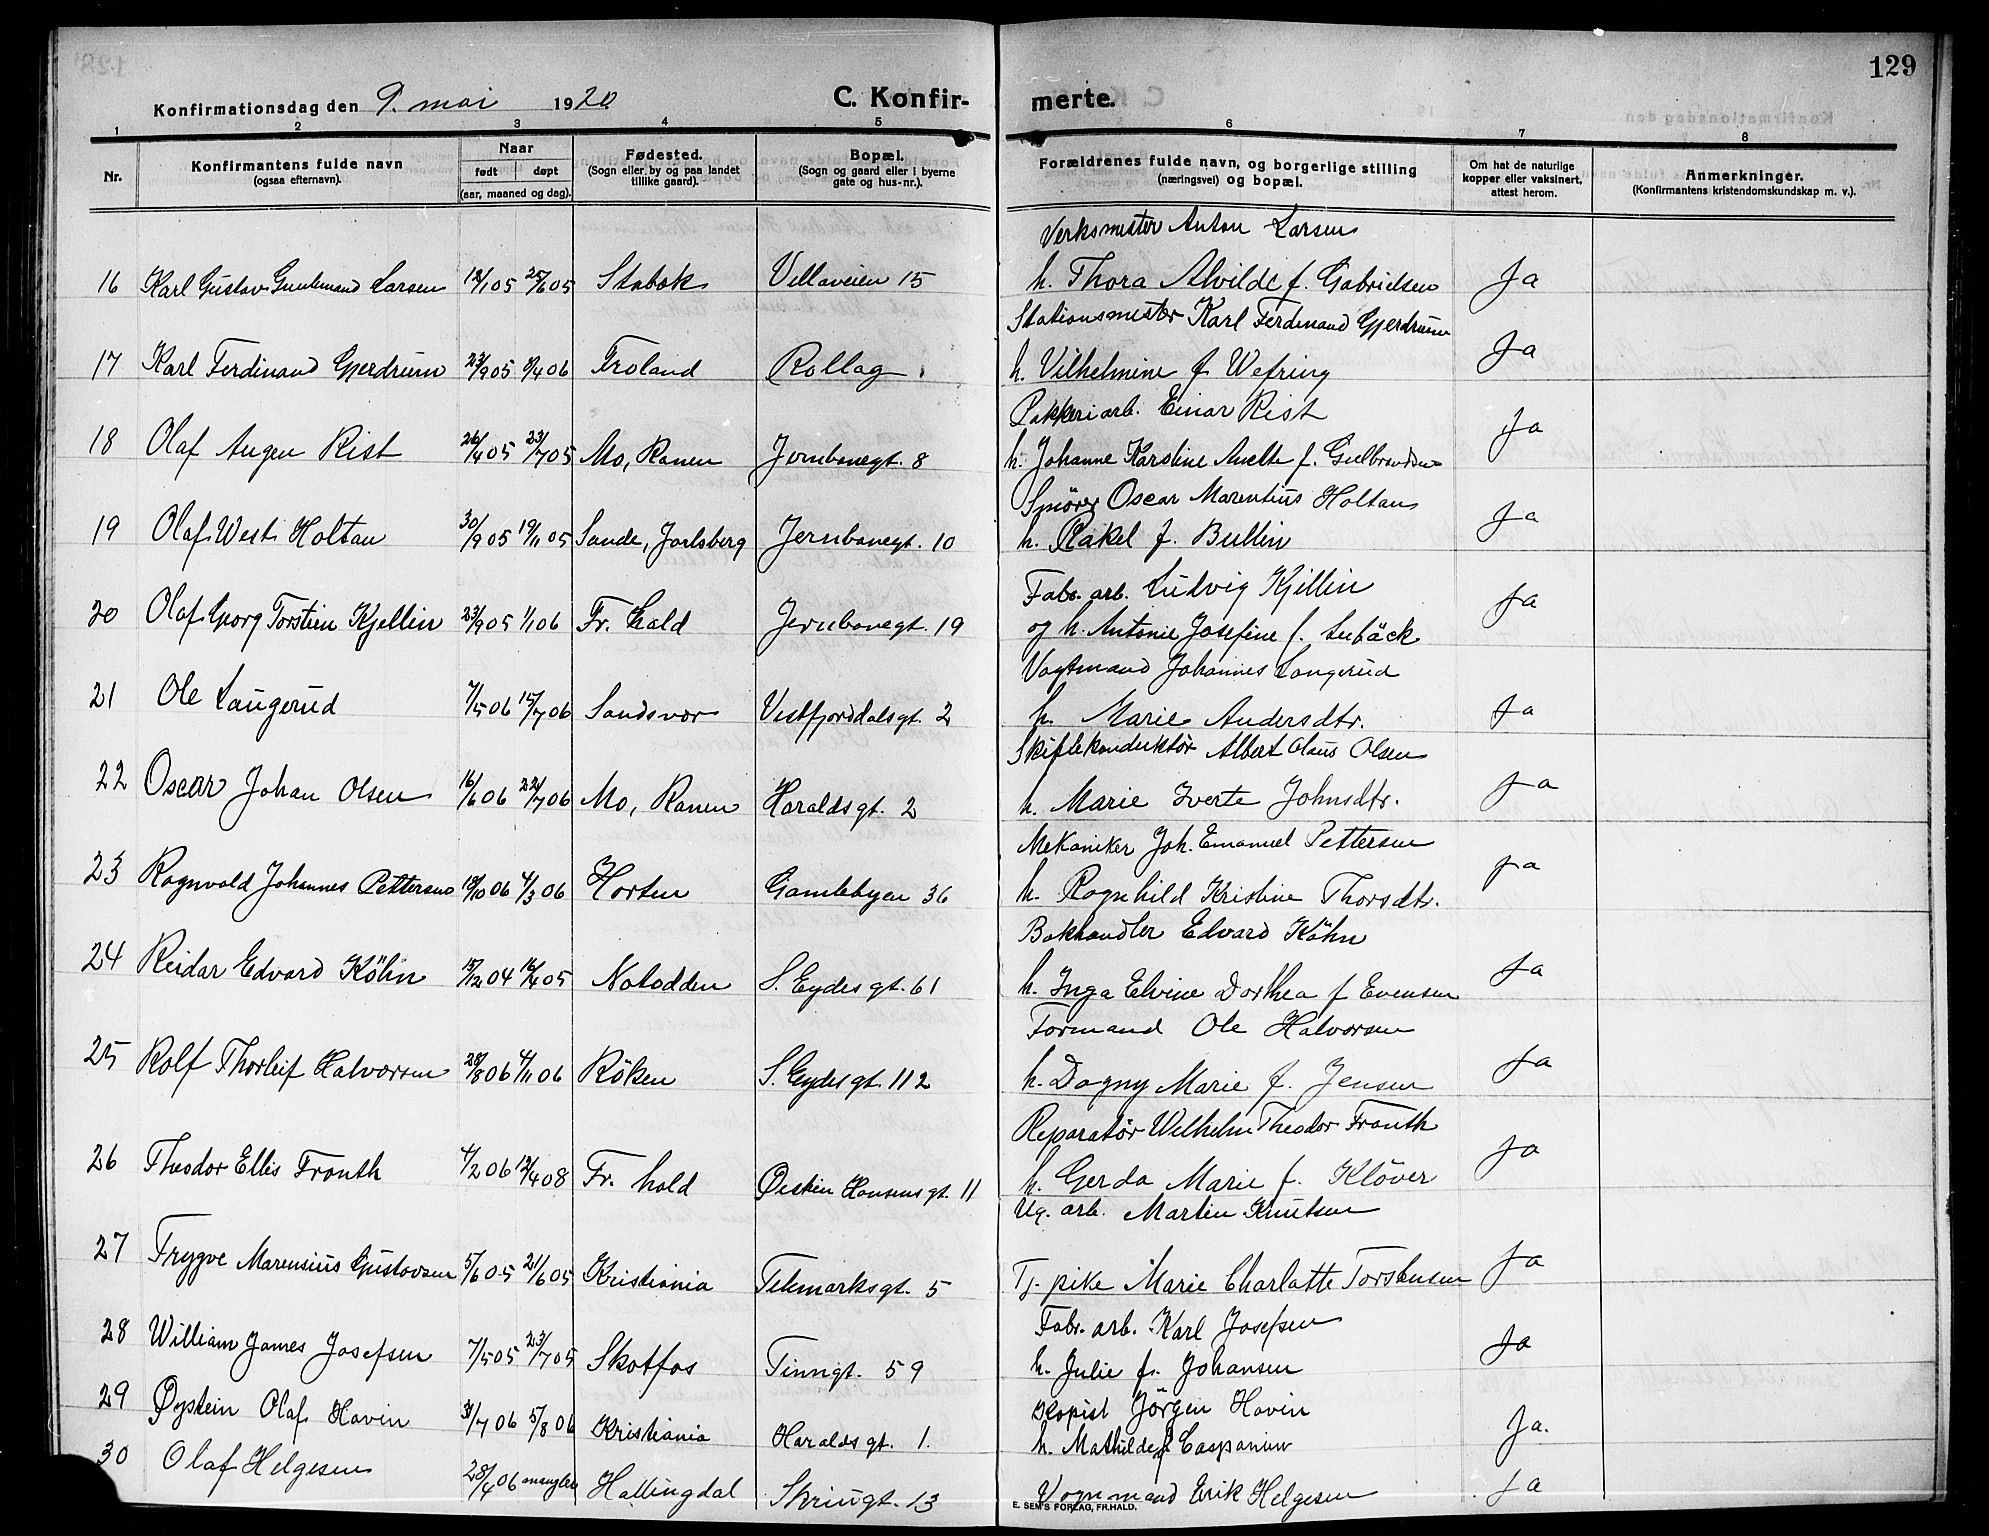 129
Konfirmationsdag den 9. mai 1920 C. Konfirmerte.
1 2 3 4 5 6 7 8
Nr. Konfirmantens fulde navn (ogsaa efternavn). Naar født døpt (aar, maaned og dag). Fødested. (Sogn eller by og paa landet tillike gaard). Bopæl. (Sogn og gaard eller i byerne gate og hus-nr.). Forældrenes fulde navn, og borgerlige stilling (næringsvei) og bopæl. Om hat de naturlige kopper eller vaksinert, attest herom. Anmerkninger. (Konfirmantens kristendomskundskap m. v.).
Verksmester Anton Larsen
16 Karl Gustav Larsen Stabæk Villaveien 15 h. Thora Alvilde f. Gabrielsen Ja
Stationsmester Karl Ferdinand Gjerdrum
17 Karl Ferdinand Gjerdrum 23/9 05 8/4 06 Froland Rollag. h. Vilhelmine f Wefring Ja
Pakkeriarb. Einar Rist
18 Olaf Augen Rist 26/4 05 23/7 05 Mo, Ranen Jernbanegt. 8 h. Johanne Karoline Anette f. Gulbrandsen Ja
Smører Oscar Marentius Holtan
19 Olaf West Holtan 30/9 05 19/11 05 Sande, Jarlsberg Jernbanegt. 10 h. Rakel f. Bullin Ja
Fabr. arb. Ludvig Kjellin
20 Olaf Georg Torstein Kjellin 23/9 05 1/1 06 Fr. hald Jernbanegt. 19 og h. Antonie Josefine f. Ja
Vagtmand Johannes Langerud
21 Ole Langerud 7/5 06 15/7 06 Sandsvær Vestfjorddalsgt. 2 h. Marie Andersdtr. Ja
Skiftekonduktør Albert Olaus Olsen
22 Oscar Johan Olsen 16/6 06 22/7 06 Mo, Ranen Haraldsgt. 2 h. Marie Iverte Johnsdtr. Ja
Mekaniker Joh. Emanuel Pettersen
23 Ragnvald Johannes Pettersen 4/3 06 Horten Gamlebyen 36 h. Ragnhild Kristine Thorsdtr. Ja
Bokhandler Edvard Köhn
24 Reidar Edvard Köhn 15/12 04 16/4 05 Notodden S. Eydesgt. 61 h. Inga Elvine Dorthea f Evensen Ja
Formand Ole Halvorsen
25 Rolf Thorleif Halvorsen 28/8 06 4/11 06 Röken S. Eydesgt. 112 h. Dagny Marie f. Jensen Ja
Reparatør Wilhelm Theodor Fronth
26 Theodor Ellis Fronth 4/2 06 12/4 08 Fr. hald Øistein Hansensgt. 11 h. Gerda Marie f. Klöver Ja
Ug. arb. Martin Knutsen
27 Trygve Marensius Gustavsen 5/6 05 21/6 05 Kristiania Telemarksgt. 5 Tj. pike Marie Charlotte Torstensen Ja
Fabr. arb. Karl Josefsen
28 William James Josefsen 7/5 05 23/7 05 Skotfos Tinngt. 59 h. Julie f. Johansen Ja
Kopist Jørgen Hovin
29 Øystein Olaf Hovin 31/7 06 5/8 06 Kristiania Haraldsgt. 1. h. Mathilde f. Ja.
30 Olaf Helgesen 28/4 06 mangler Hallingdal Skriugt. 13 Vognmand Erik Helgesen Ja
E. SEM'S FORLAG, FR.HALD.